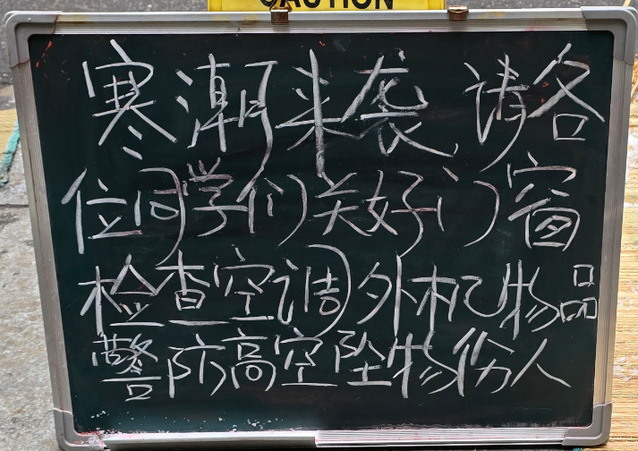 CAUTION
寒潮来袭,请各
位同学们关好门窗
检查空调外机物品
警防高空坠物伤人